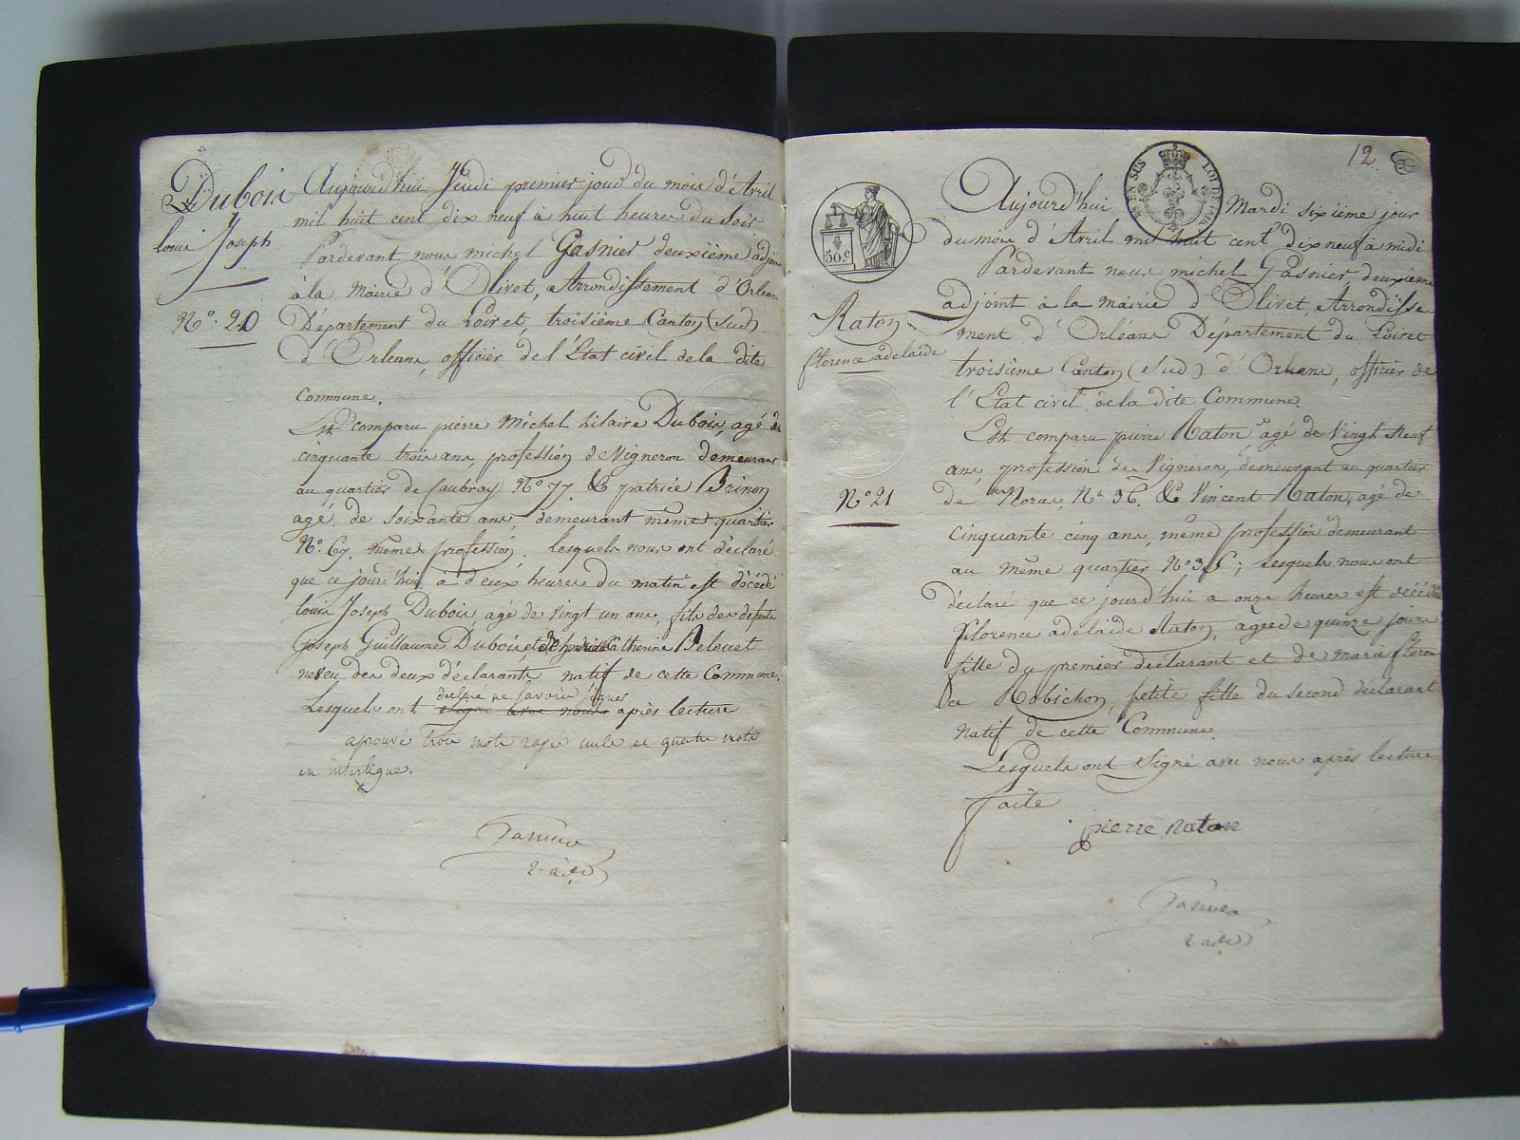 Dubois
louis Joseph
N.º 20
Aujourd'hui Jeudi premier jour du mois d'Avril
mil huit cent dix neuf à huit heures du soir
Pardevant nous michel Gasnier deuxième adjoint
à la Mairie d'Olivet, Arrondissement d'Orléans
Département du Loiret, troisième Canton (sud)
d'Orléans, officier de l'État civil de la dite
Commune.
Est comparu pierre Michel hilaire Dubois, agé de
cinquante trois ans, profession de Vigneron demeurant
au quartier de Caubray N.º 77. & patrice Brinon
agé de soixante ans, demeurant même quartier
N.º 67. même profession. lesquels nous ont déclaré
que ce jour'hui à deux heures du matin est décédé
louis Joseph Dubois agé de vingt un ans, fils des defunts
Joseph Guillaume Dubois et de Catherine Beleuet
neveu des deux déclarants natif de cette Commune.
déclaré ne savoir signer
Lesquels ont signé avec nous après lecture
aprouvé trois mots rayés nuls et quatre mots
en interligne.
Gasnier
2e adjt
12
EN SUS
LOI DE 1816
50.c
Raton
florence adelaide
N.º 21
Aujourd'hui Mardi sixième jour
du mois d'Avril mil huit cent dix neuf à midi
Pardevant nous michel Gasnier deuxieme
adjoint à la mairie d'Olivet, Arrondisse
ment d'Orléans Département du Loiret
troisième Canton (sud) d'Orleans, officier de
l'État civil de la dite Commune.
Est comparu pierre Raton, agé de Vingt Neuf
ans, profession de Vigneron, demeurant au quartier
de Noras, N.º 36. & Vincent Raton, agé de
cinquante cinq ans, même profession demeurant
au même quartier N.º 36; lesquels nous ont
déclaré que ce jourd'hui a onze heures est décédée
florence adelaide Raton, agée de quinze jours
fille du premier déclarant et de marie floren
ce Robichon, petite fille du second déclarant
natif de cette Commune.
Lesquels ont Signé avec nous après lecture
faite
pierre raton
Gasnier
2 adjt